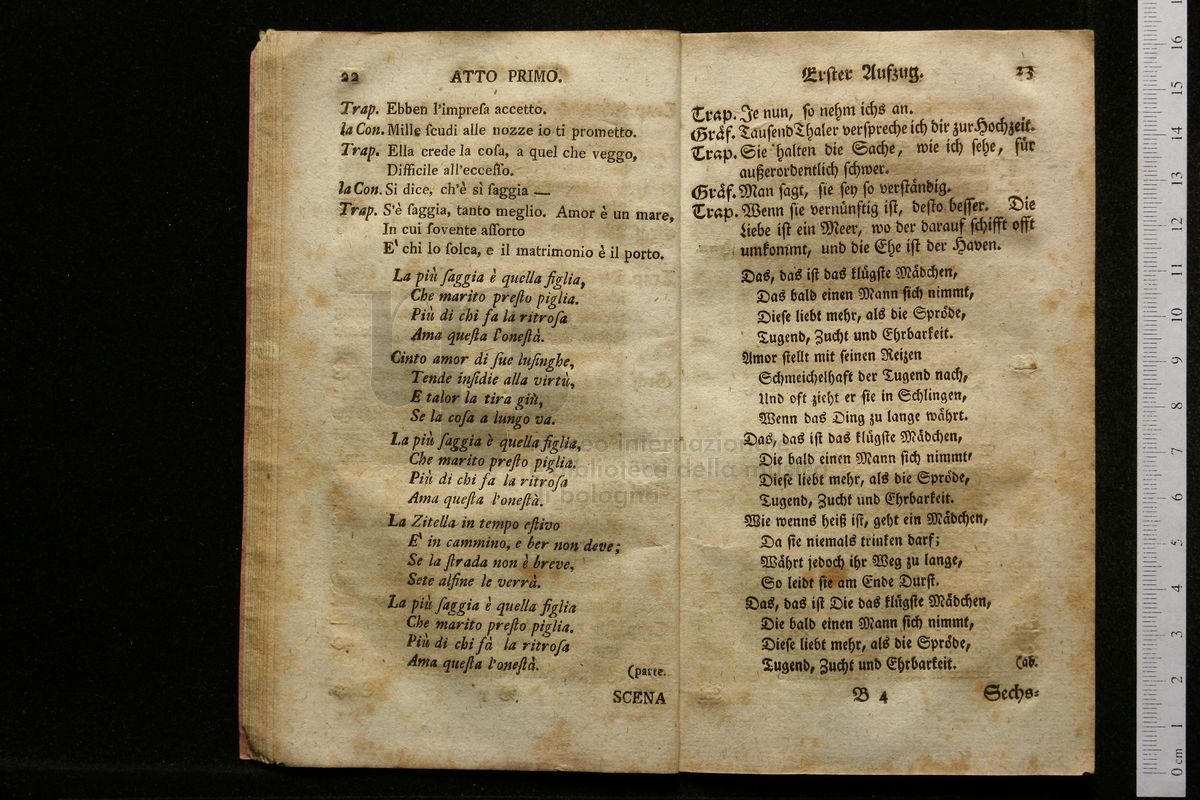 22 ATTO PRIMO.
Trap. Ebben l'impreſa accetto.
la Con. Mille ſcudi alle nozze io ti prometto.
Trap. Ella crede la coſa, a quel che veggo,
Difficile all'ecceſſo.
la Con. Si dice, ch'è sì ſaggia —
Trap. S'è ſaggia, tanto meglio. Amor è un mare,
In cui ſovente aſſorto
E' chi lo ſolca, e il matrimonio è il porto.
La più ſaggia è quella figlia,
Che marito preſto piglia.
Più di chi fa la ritroſa
Ama queſta l'oneſtà.
Cinto amor di ſue luſinghe,
Tende inſidie alla virtù,
E talor la tira giù,
Se la coſa a lungo va.
La più ſaggia è quella figlia,
Che marito preſto piglia.
Più di chi fa la ritroſa
Ama queſta l'oneſtà.
La Zitella in tempo eſtivo
E' in cammino, e ber non deve;
Se la ſtrada non è breve,
Sete alfine le verrà.
La più ſaggia è quella figlia
Che marito preſto piglia.
Più di chi fà la ritroſa
Ama queſta l'oneſtà.
(parte.
SCENA
Erſter Aufzug. 23
Trap. Je nun, ſo nehm ichs an.
Gräf. Tauſend Thaler verſpreche ich dir zur Hochzeit.
Trap. Sie halten die Sache, wie ich ſehe, für
außerordentlich ſchwer.
Gräf. Man ſagt, ſie ſey ſo verſtändig.
Trap. Wenn ſie vernünftig iſt, deſto beſſer. Die
Liebe iſt ein Meer, wo der darauf ſchifft offt
umkommt, und die Ehe iſt der Haven.
Das, das iſt das klügſte Mädchen,
Das bald einen Mann ſich nimmt,
Dieſe liebt mehr, als die Spröde,
Tugend, Zucht und Ehrbarkeit.
Amor ſtellt mit ſeinen Reizen
Schmeichelhaft der Tugend nach,
Und oft zieht er ſie in Schlingen,
Wenn das Ding zu lange währt.
Das, das iſt das klügſte Mädchen,
Die bald einen Mann ſich nimmt,
Dieſe liebt mehr, als die Spröde,
Tugend, Zucht und Ehrbarkeit.
Wie wenns heiß iſt, geht ein Mädchen,
Da ſie niemals trinken darf;
Währt jedoch ihr Weg zu lange,
So leidt ſie am Ende Durſt.
Das, das iſt Die das klügſte Mädchen,
Die bald einen Mann ſich nimmt,
Dieſe liebt mehr, als die Spröde,
Tugend, Zucht und Ehrbarkeit.
(ab.
B 4 Sechs⸗
museo internazionale
biblioteca della musica
bologna
16
15
14
13
12
11
10
9
8
7
6
5
4
3
2
1
0 cm